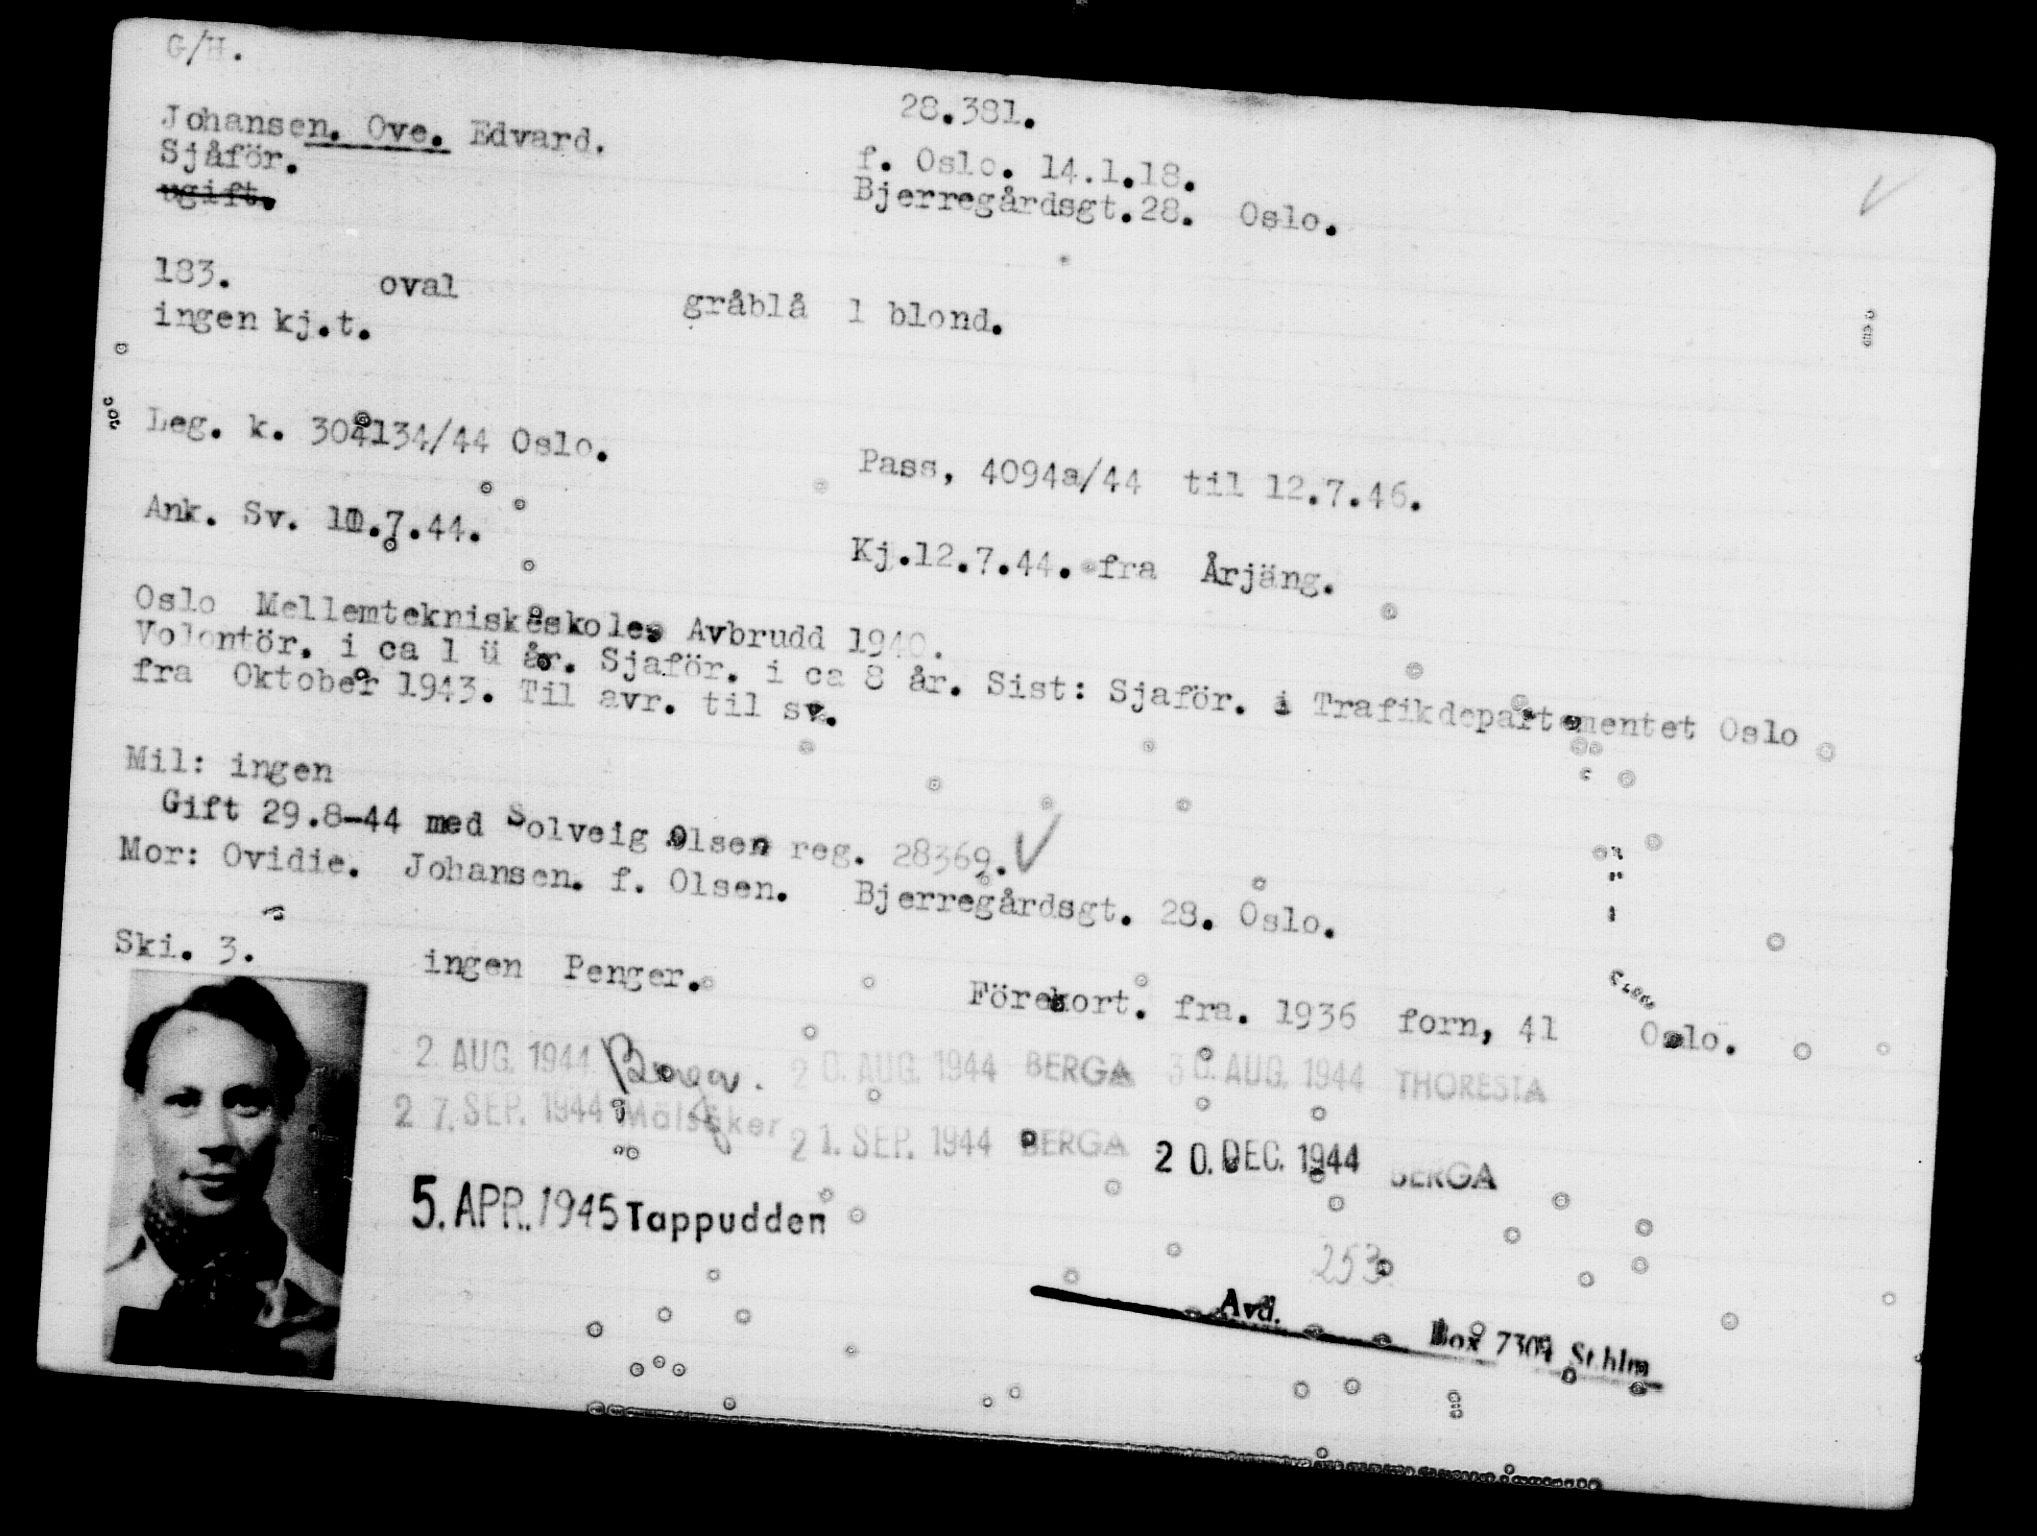 G/H.
28.381.
Johansen. Ove. Edvard.
f. Oslo. 14.1.18.
Sjåför.
Bjerregårdsgt.28. Oslo.
ugift.
183. oval gråblå l blond.
ingen kj.t.
Leg. k. 304134/44 Oslo.
Pass, 4094a/44 til 12.7.46.
Ank. Sv. .7.44.
Kj.12.7.44. fra Årjäng.
Oslo Mellemtekniskeskole, Avbrudd 1940.
Volontör. i ca 1 ü år. Sjaför. i ca 8 år. Sist: Sjaför. i Trafikdepartementet Oslo
fra Oktober 1943. Til avr. til sv.
Mil: ingen
Gift 29.8-44 med Solveig Olsen reg. 28369.
Mor: Ovidie. Johansen. f. Olsen. Bjerregårdsgt. 28. Oslo.
Ski. 3. ingen Penger. Förekort. fra. 1936 forn, 41 Oslo.
2. AUG. 1944 Berga. 20. AUG. 1944 BERGA 30. AUG. 1944 THORESTA
27. SEP. 1944 Mälsåker 21. SEP. 1944 BERGA 20. DEC. 1944 BERGA
5. APR. 1945 Tappudden
253
Avd. Box 7309 Sthlm